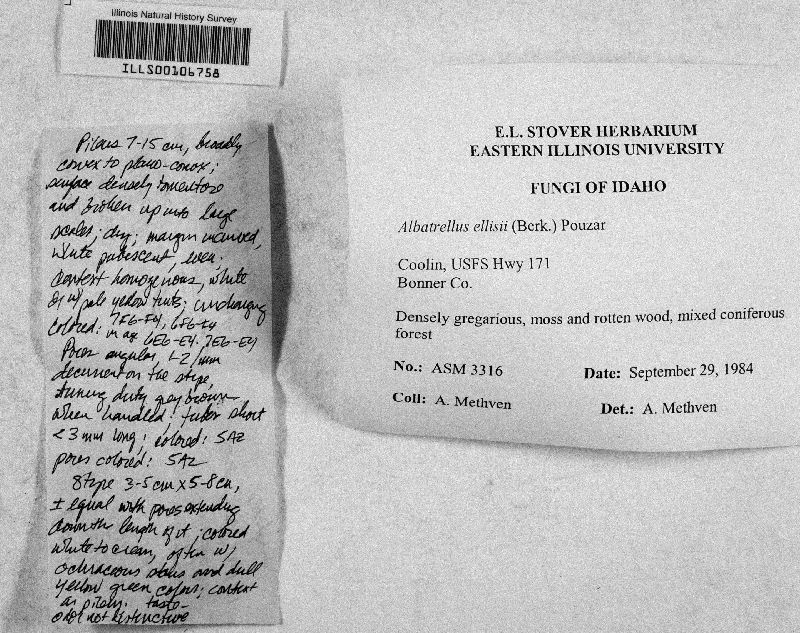 Illinois Natural History Survey
ILLS00106758
Pileus 7-15 cm, broadly
convex to plano-convex;
surface densely tomentose
and broken up into large
scales; dry; margin incurved,
white pubescent, even.
Context homogenous, white
or w/ pale yellow tints; unchanging
colored: 7E6-F4, 6F6-E4
in age 6E6-E4. 7E6-E4
Pores angular, 1-2/mm
decurrent on the stipe,
turning dirty grey brown
when handled; tubes short
<3 mm long; colored: 5A2
pores colored: 5A2
Stipe 3-5 cm x 5-8 cm,
± equal with pores extending
down the length of it; colored
white to cream, often w/
ochraceous stains and dull
yellow green colors; context
as pileus. taste-
odor not distinctive
E.L. STOVER HERBARIUM
EASTERN ILLINOIS UNIVERSITY
FUNGI OF IDAHO
Albatrellus ellisii (Berk.) Pouzar
Coolin, USFS Hwy 171
Bonner Co.
Densely gregarious, moss and rotten wood, mixed coniferous
forest
No.: ASM 3316 Date: September 29, 1984
Coll: A. Methven Det.: A. Methven